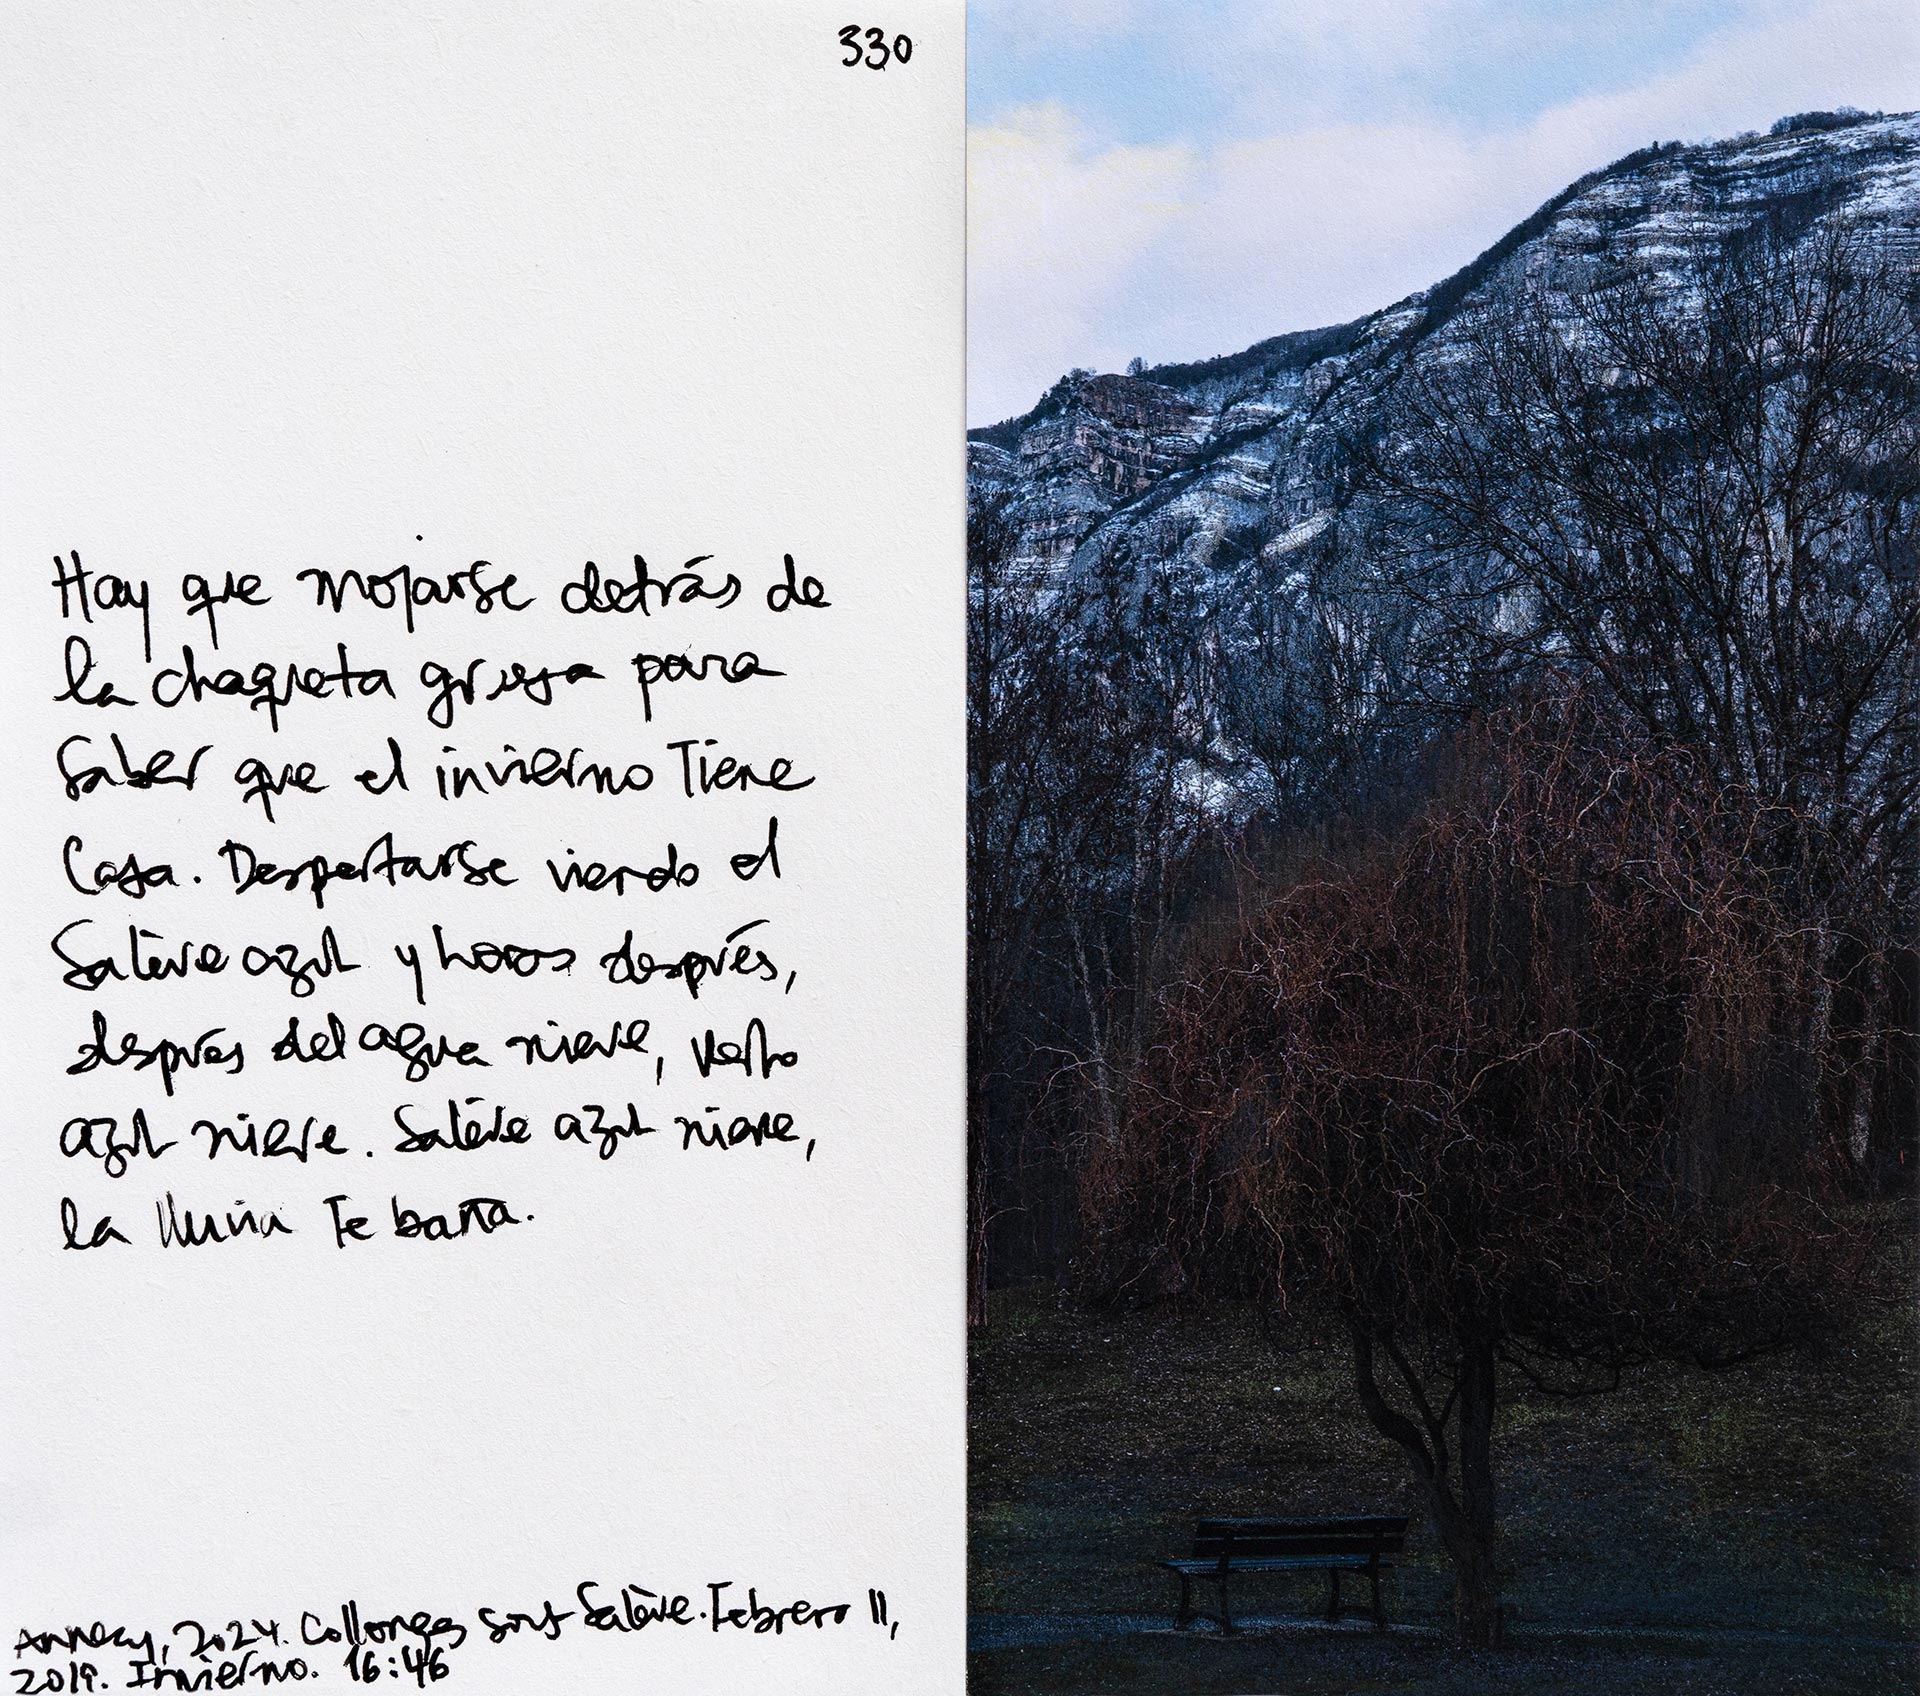 330
Hay que mojarse detrás de
la chaqueta gruesa para
saber que el invierno tiene
casa. Despertarse viendo el
Salève azul y horas después,
después del agua nieve, verlo
azul nieve. Salève azul nieve,
la lluvia te baña.
Annecy, 2024. Collonges sous Salève. Febrero 11,
2019. Invierno. 16:46